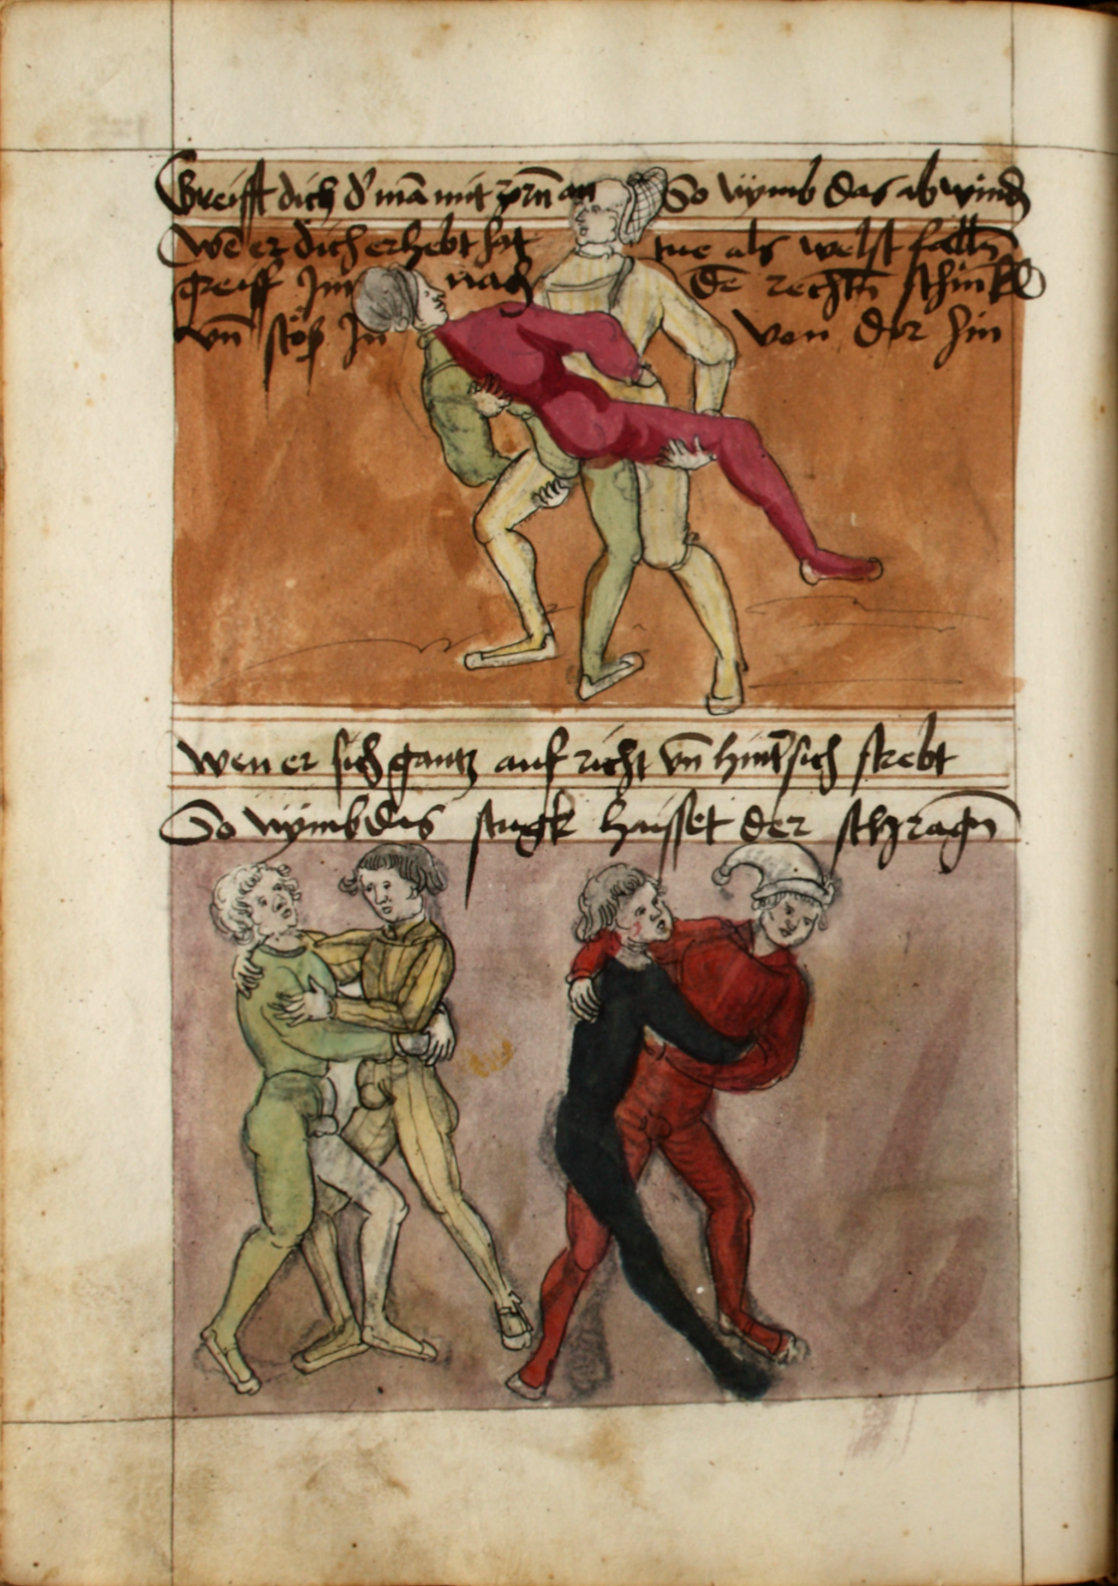 Greifft dich d' man mit zorn an So nÿmb das abwinden
Wen er dich erhebt hat tue als welst fallen
greiff Im nach den rechten schinkel
vn̄ stoss In von dir hin
wen er sich gantz auf richt vn̄ hint' sich strebt
So nÿmb das stugk haisset der schragn̄